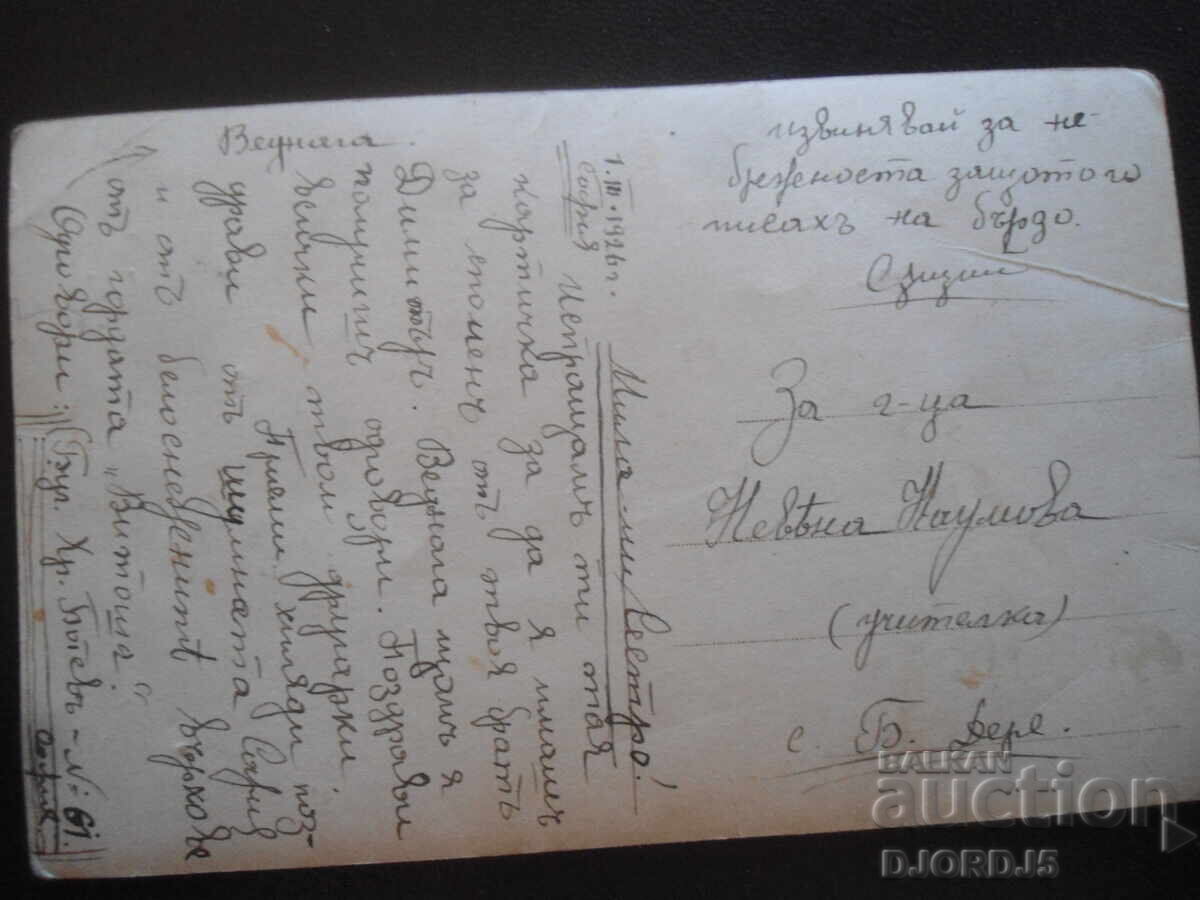 1.III.1926 г.
София
Мила ми Сестро!
Испращамъ ти тая
картичка за да я имашъ
за споменъ отъ твоя братъ
Димитъръ. Веднага щомъ я
получишъ одговори. Поздрави
всички твои другарки.
Приеми хиляди поз-
драви отъ шумната София
и отъ белоснеженитѣ върхове
отъ гордата „Витоша“.
Одговори:
Веднага.
Бул. Хр. Ботевъ - № 61.
София
извинявай за не-
брежноста защотого
писахъ на бърдо.
Същия
За г-ца
Невѣна Наумова
(учителка)
с. Б. Дере.
BALKAN
auction
DJORDJ5